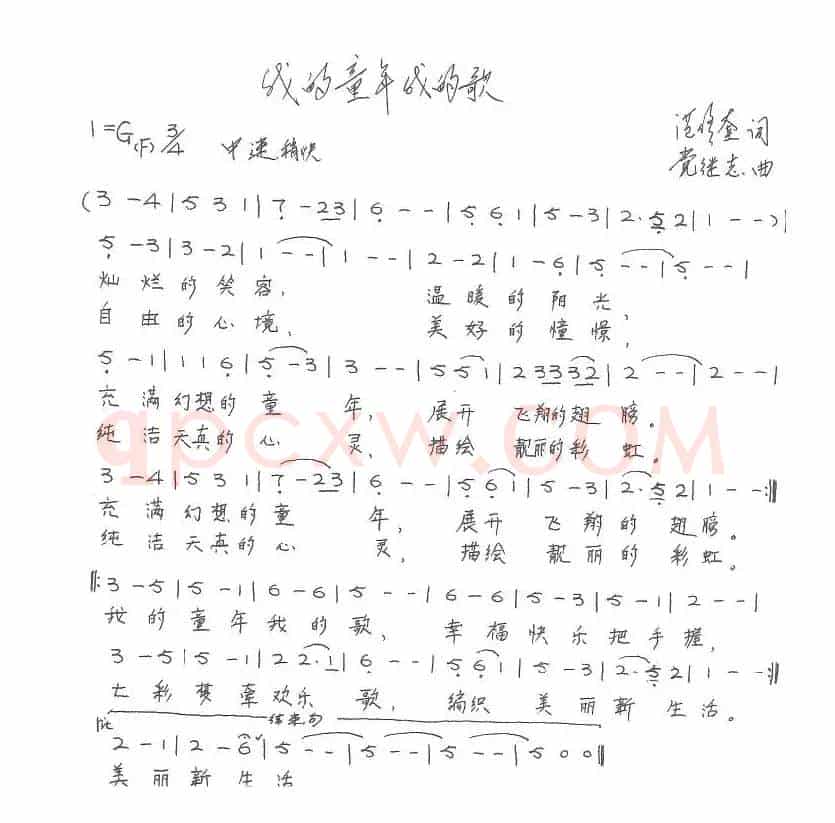 我的童年我的歌
1=G(F) 3/4 中速稍快
词
党继志 曲
(3 - 4 | 5 3 1 | 7 - 2 3 | 6 - - | 5 6 1 | 5 - 3 | 2 · 5 2 | 1 - - ) |
5 - 3 | 3 - 2 | 1 - - | 1 - - | 2 - 2 | 1 - 6 | 5 - - | 5 - - |
灿烂的笑容, 温暖的阳光,
自由的心境, 美好的憧憬,
5 - 1 | 1 1 6 | 5 - 3 | 3 - - | 5 5 1 | 2 3 3 3 2 | 2 - - | 2 - - |
充满幻想的童年, 展开飞翔的翅膀。
纯洁天真的心灵, 描绘靓丽的彩虹。
qpcxw.COM
3 - 4 | 5 3 1 | 7 - 2 3 | 6 - - | 5 6 1 | 5 - 3 | 2 · 5 2 | 1 - - :||
充满幻想的童年, 展开飞翔的翅膀。
纯洁天真的心灵, 描绘靓丽的彩虹。
||: 3 - 5 | 5 - 1 | 6 - 6 | 5 - - | 6 - 6 | 5 - 3 | 5 - 1 | 2 - - |
我的童年我的歌, 幸福快乐把手握,
3 - 5 | 5 - 1 | 2 2 · 1 | 6 - - | 5 6 1 | 5 - 3 | 2 · 5 2 | 1 - - :||
七彩梦牵欢乐歌, 编织美丽新生活。
结束句
2 - 1 | 2 - 6 | 5 - - | 5 - - | 5 - - | 5 0 0 ||
美丽新生活